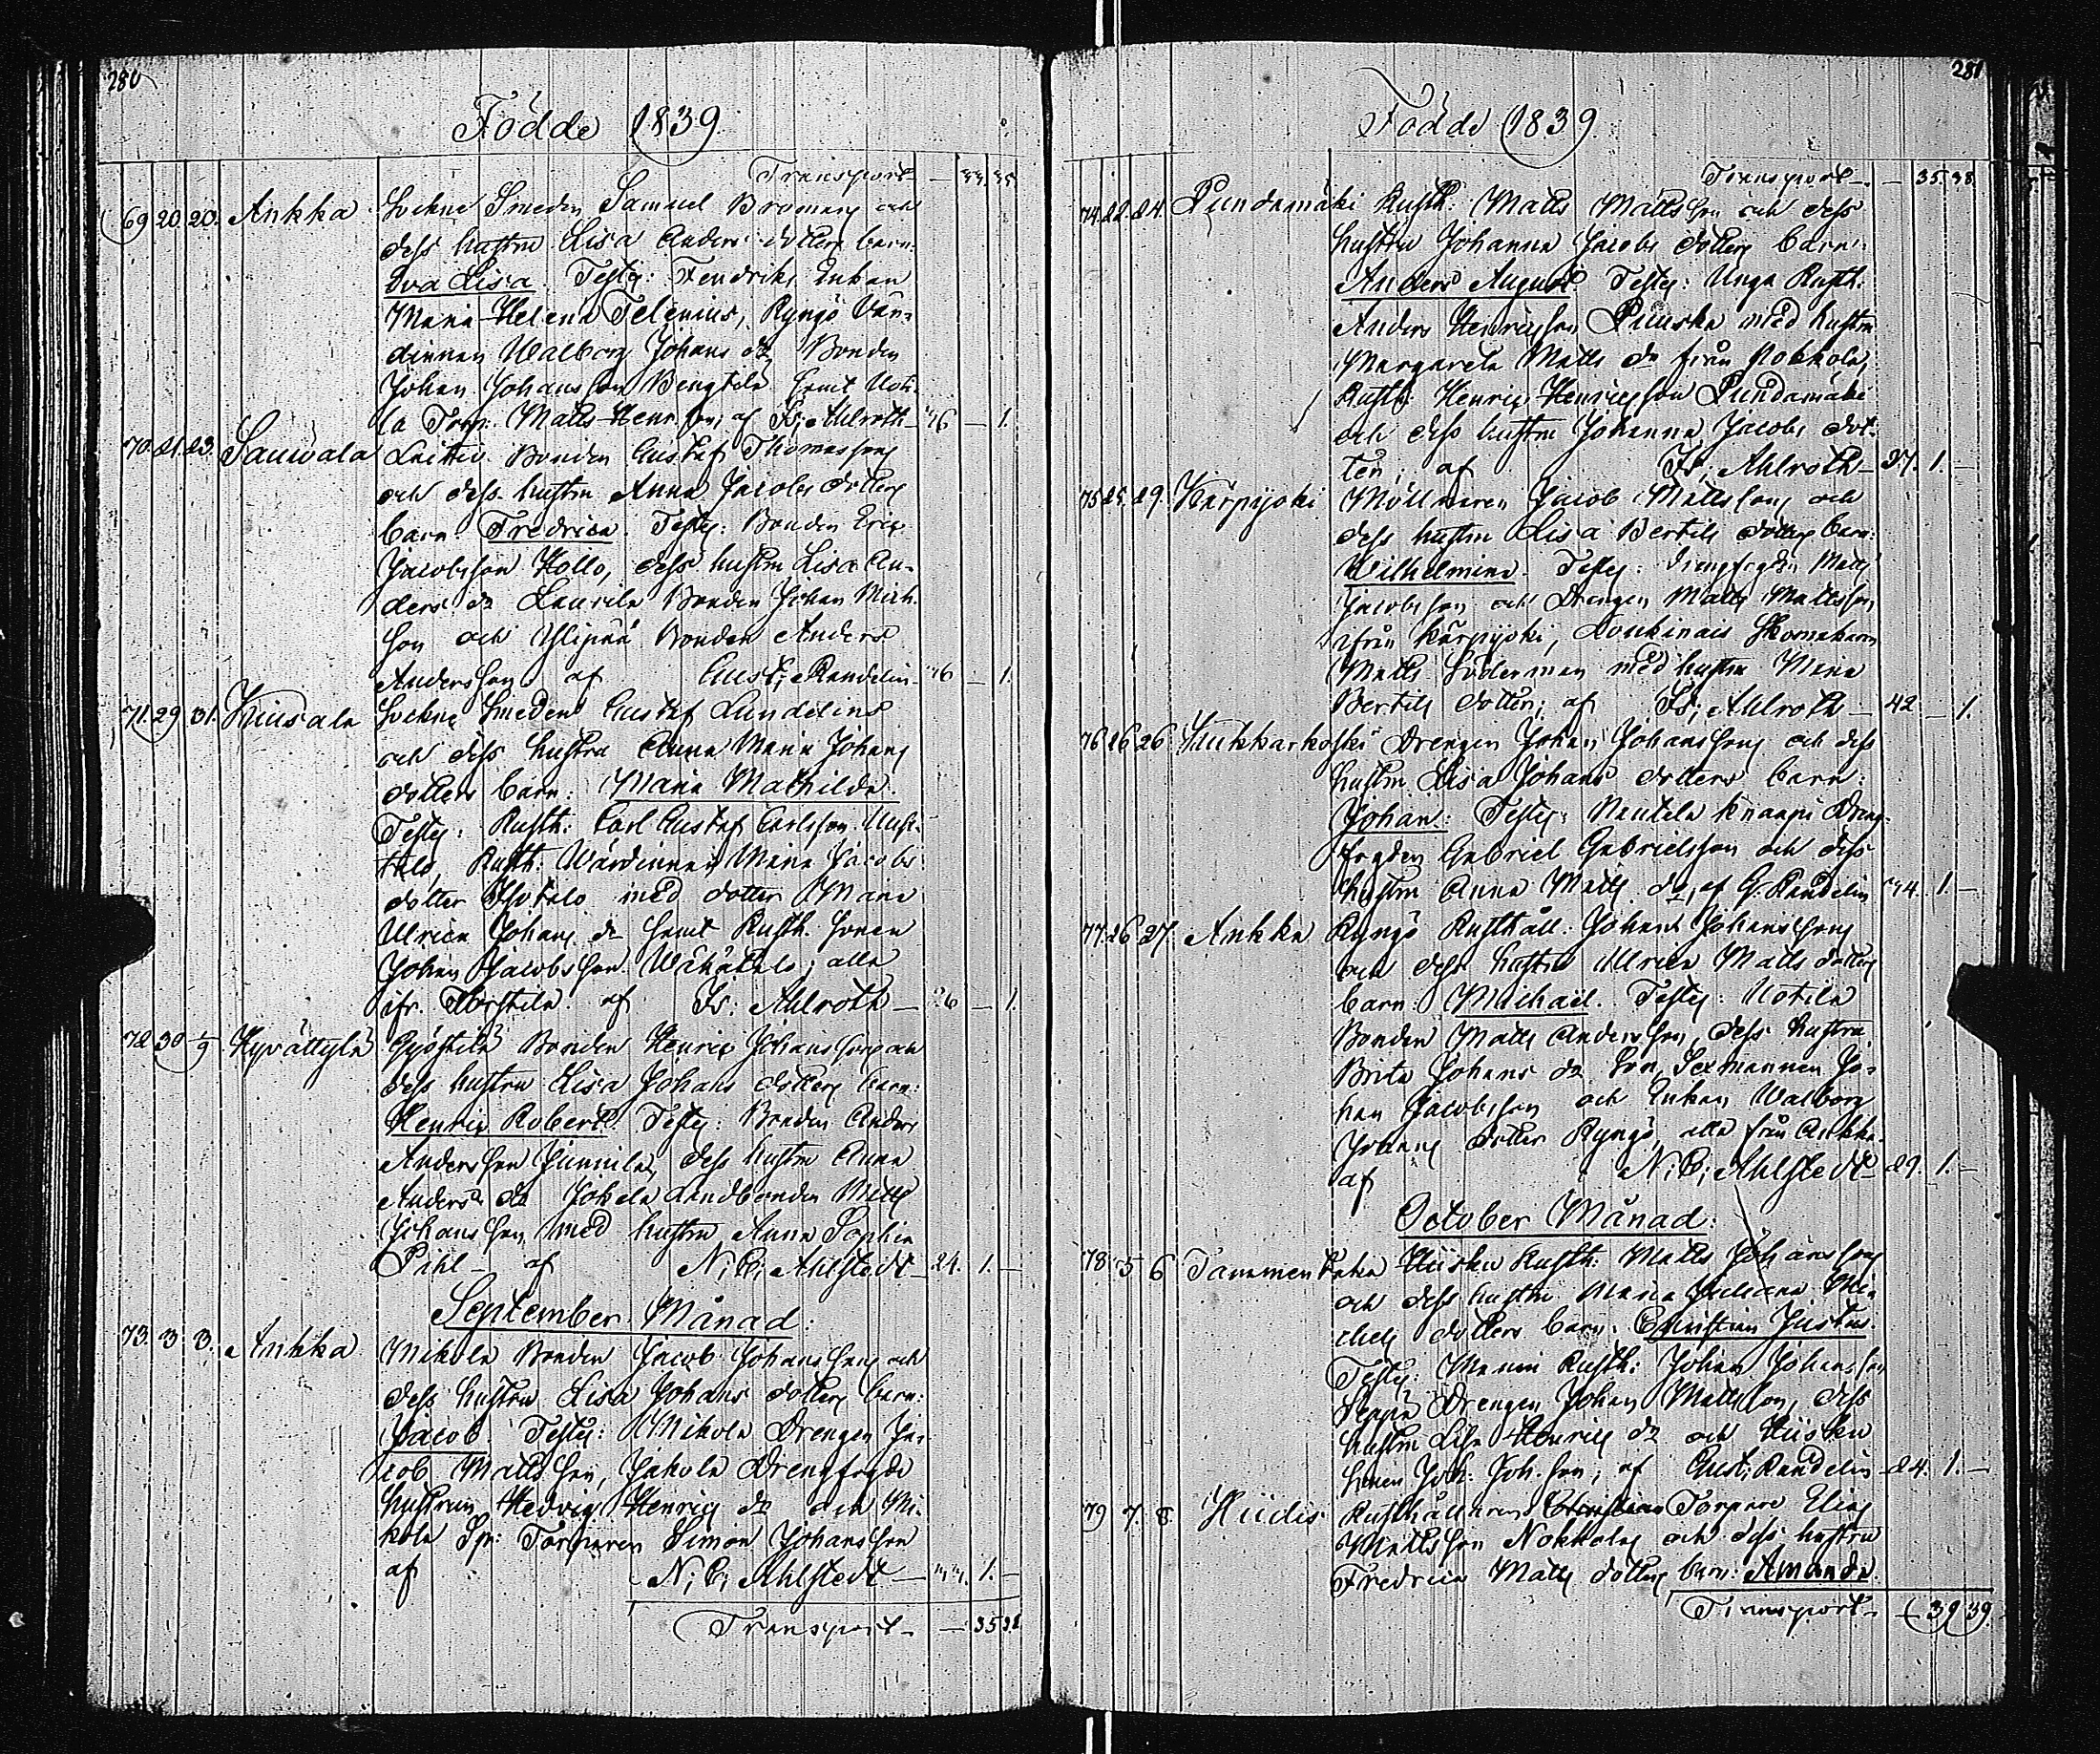 280
Födde 1839
Transport — 33. 35
69 20. 20. Ankka Sockne Smeden Samuel Broman och
dess hustru Lisa Anders dotters barn:
Eva Lisa. Testes: Fendriks Enkan
Maria Helena Telenius, Ryngö Vär-
dinnan Walborg Johans dr Bonden
Johan Johansson Bengtila samt Uoti-
la Torp. Matts Henr.son; af Fr; Ahlroth — 26 — 1.
70. 21. 23. Sauvala Laitio Bonden Gustaf Thomasson
och dess hustru Anna Jacobs dotters
barn Fredrica. Testes: Bonden Eric
Jacobsson Kollo, dess hustru Lisa An-
ders dr Laurila Bonden Johan Mich.
son och Ylipää Bonden Anders
Andersson af Gust; Randelin — 26 — 1.
71. 29 31. Kiusala Sockne Smeden Gustaf Lundelins
och dess hustru Anna Maria Johans
dotters barn: Maria Mathilda.
Testes: Rusth: Carl Gustaf Carlsson
Rusth: Värdinnan Maria Jacobs
dotter Isotalo med dotter Maria
Ulrica Johans dr samt Rusth. sonen
Johan Jacobsson Wähätalo; alla
ifr. af Fr. Ahlroth — 26 — 1.
72 30 1/9 Kyvättylä Gjöstilä Bonden Henric Johansson och
dess hustru Lisa Johans dotters barn:
Henric Robert. Testes: Bonden Anders
Andersson Junnila, dess hustru Anna
Anders dr Jokela Landbonden Matts
Johansson med hustru Anna Sophia
Pihl — af N; G; Ahlstedt — 24. 1. —
September Månad:
73. 3 3. Ankka Mikola Bonden Jacob Johansson och
dess hustru Lisa Johans dotters barn:
Jacob Testes: Mikola Drengen Ja-
cob Mattsson, Jakola Drengfogde
hustrun Hedvig Henrics dr och Mi-
kola Sp: Torparen Simon Johansson
af N; G; Ahlstedt — 1. —
Transport — — 35 38.
281
Födde 1839
Transport — — 35. 38
74. 22. 24. Pundamäki Rusth. Matts Mattsson och dess
hustru Johanna Jacobs dotters barn:
Anders August Testes: Unga Rusth.
Anders Henricsson Puuska med hustru
Margareta Matts dr från Nokkola,
Rusth: Henric Henricsson Pundamäki
och dess hustru Johanna Jacobs dot-
ter; af Fr; Ahlroth — 27. 1. —
75 25. 29 Kärpijoki Möllnaren Jacob Mattsson och
dess hustru Lisa Bertils dotters barn:
Wilhelmina Testes: Drengfogden Matts
Jacobsson och Drengen Matts Mattsson
ifrån Kärpijoki, Loukinais Skomakaren
Matts Söderman med hustru Maria
Bertils dotter; af Fr; Ahlroth — 42 — 1.
76 26 26 Kukkarkoski Drengen Johan Johansson och dess
hustru Lisa Johans dotters barn:
Johan: Testes: Nautela Knaapi Dreng-
fogden Gabriel Gabrielsson och dess
hustru Anna Matts dr, af G. Randelin 34. 1. —
77. 26 27 Ankka Ryngö Rusthåll: Johan Johansson
och dess hustru Ulrica Matts dotters
barn: Michaël. Testes: Uotila
Bonden Matts Andersson, dess hustru
Brita Johans dr Sexmannen Jo-
han Jacobsson och Enkan Walborg
Johans dotter Ryngö, alla från Ankka.
af N; G; Ahlstedt — 29. 1. —
October Månad:
78 5 6 Tammentaka Hiiska Rusth: Matts Johansson
och dess hustru Maria Juliana Mi-
chels dotters barn. Christian Justus.
Testes: Manni Rusth: Johan Johansson
Seppä Drengen Johan Mattsson, dess
hustru Lisa Henrics dr och Hiiska
sonen Joh: Joh.son; af Gust; Randelin — 24. 1. —
79 7. 8. Hiidis Rusthållarens Torpare Elias
Mattsson Nokkola och dess hustru
Fredrica Matts dotters barn: Amanda.
Transport — 39 39.